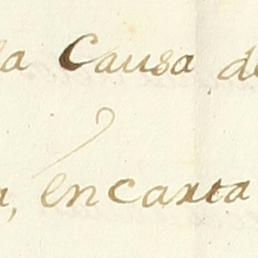 la Causa de
a, en carta